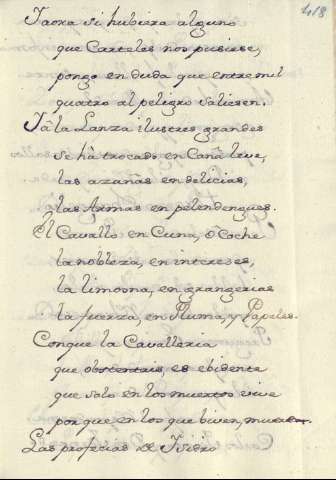 418
Iaora si hubiera alguno
que Carteles nos pusiese,
pongo en duda que entre mil
quatro al peligro saliesen.
Iâ la Lanza ilustres grandes
se hà trocado en Caña leve,
las azañas en delicias,
las Armas en pelendengues.
El Cavallo en Cuna, ô Coche
la nobleza, en intereses,
la limosna, en grangerias
la fuerza, en Pluma, y Papeles.
Conque la Cavalleria
que obstentais, es ebidente
que solo en los muertos vive
porque en los que biven, muere.
Las profecias de Isidro